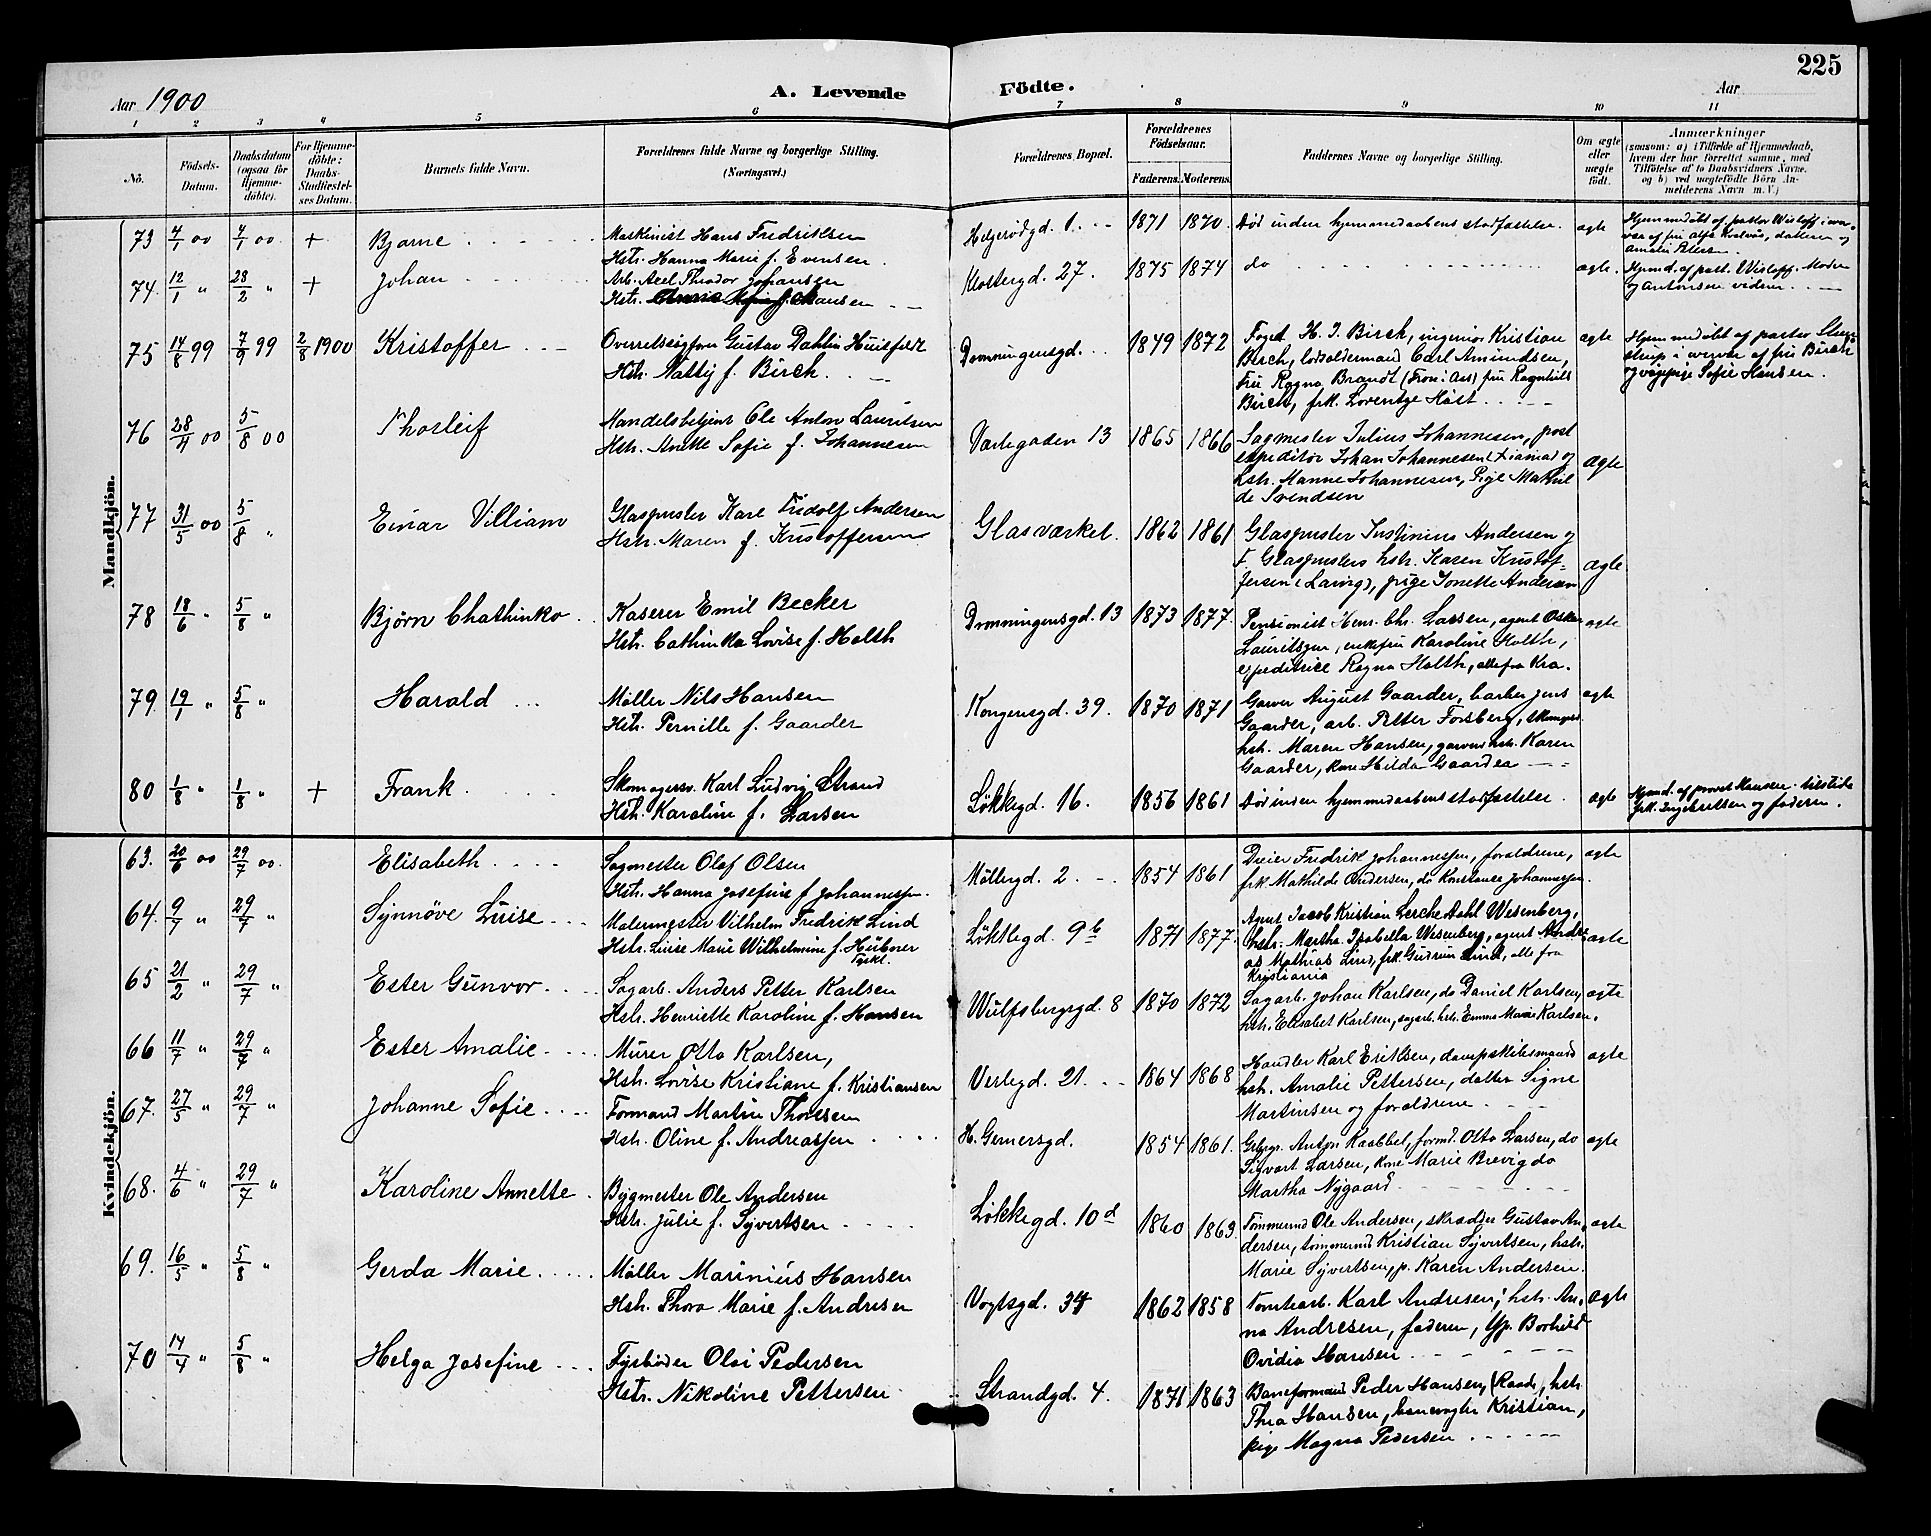 225
Aar 1900
A. Levende
Födte.
Aar
1 2 3 4 5 6 7 8 9 10 11
No.
Födsels-
Datum.
Daabsdatum
(ogsaa for
Hjemme-
döbte).
For Hjemme-
döbte:
Daabs-
Stadfæstel-
ses Datum.
Barnets fulde Navn.
Forældrenes fulde Navne og borgerlige Stilling.
(Næringsvei.)
Forældrenes Bopæl.
Forældrenes
Födselsaar.
Faderens. Moderens.
Faddernes Navne og borgerlige Stilling.
Om ægte
eller
uægte
født.
Anmærkninger
(saasom: a) i Tilfælde af Hjemmedaab,
hvem der har forrettet samme, med
Tilföielse af to Daabsvidners Navne.
og b) ved uægtefödte Börn An-
melderens Navn m. V.)
Mandkjön.
73 4/1 00 4/1 00. + Bjarne
Maskinist Hans Fredriksen
Hstr. Hanna Marie f. Evensen
Helgerödgd. 1. 1871 1870. Död inden hjemmedaabens stadfæstelse. ægte
Hjemmedöbt af pastor Wisløff
74. 12/1 " 28/2 " + Johan
Arb. Axel Theodor Johansen
Hstr.
Klostergd. 27. 1875 1874 do ægte.
Hjmd. af past. Wisløff. Moder
75 14/8 99 7/9 99 2/8 1900 Kristoffer
Overretssagfører Gustav Dahlin Huitfeldt
Hstr. Natty f. Birch.
Dronningensgd. 1849 1872
Foged H. J. Birch, ingeniør Kristian
Birch, lodsoldermand Carl Amundsen,
Fru Ragna Brandt fru Ragnhild
Birch, frk. Lorentze Høst
ægte
Hjemmedöbt af pastor
af fru Birch
Sofie Hansen.
76 28/4 00 5/8 00 Thorleif
Handelsbetjent Ole Anton Lauritsen
Hstr. Anette Sofie f. Johannesen
Værlegaden 13 1865 1866
Sagmester Julius Johannesen, post
expeditör Johan Johannesen og
hstr. Hanne Johannesen, Pige Mathil
de Svendsen
ægte
77 31/5 00 5/8 " Einar Villiam
Glaspuster Karl Fridolf Andersen
Hstr. Maren f. Kristoffersen
Glasværket. 1862 1861
Glaspuster Justinius Andersen og
F. Glaspusters hstr. Karen Kristof-
fersen, pige Jonette Andersen
ægte
78 18/6 " 5/8 " Björn Chathinko
Kaserer Emil Becker
Hstr. Cathinka Lovise f. Holth
Dronningensgd. 13 1873 1877.
Pensionist Henr. Chr. Larsen, agent Oskar
Lauritzen, enkefru Karoline Holth,
expeditrice Ragna Holth, alle fra Kra.
ægte
79. 19/1 " 5/8 " Harald
Møller Nils Hansen
Hstr. Pernille f. Gaarder
Kongensgd. 39. 1870 1871
Garver August Gaarder, barber Jens
Gaarder, arb. Petter Forsberg,
hstr. Maren Hansen, garvers hstr. Karen
Gaarder, Hilda Gaarder
ægte
80 1/8 " 1/8 " + Frank.
Skomagersv. Karl Ludvig Strand
Hstr. Karoline f. Larsen
Løkkegd. 16. 1856 1861 Död inden hjemmedaabens stadfæstelse. ægte
Hjmd. af provst Hansen.
frk. Ingebretsen og faderen.
Kvindekjön.
63. 20/6 00 29/7 00. Elisabeth
Sagmester Olaf Olsen
Hstr. Hanna Josefine f. Johannessen.
Møllergd. 2 1854 1861
Dreier Fredrik Johannessen, forældrene,
frk. Mathilde Andersen, do Konstance Johannessen.
ægte
64. 9/7 " 29/7 " Synnöve Luise
Malermester Vilhelm Fredrik Lind
Hstr. Luise Marie Wilhelmine f. Hübner
Tyskl.
Løkkegd. 9b 1871 1877.
Agent Jacob Kristian Lerche Dahl Wesenberg,
hstr. Martha Isabella Wesenberg, agent Andre
as Mathias Lind, frk. Gudrun Lind, alle fra
Kristiania
ægte
65 21/2 " 29/7 " Ester Gunvor
Sagarb. Anders Petter Karlsen
Hstr. Henriette Karoline f. Hansen
Wulfsbergsgd. 8 1870 1872
Sagarb. Johan Karlsen, do Daniel Karlsen,
hstr. Elisabet Karlsen, sagarb. hstr. Emma Marie Karlsen.
ægte
66 11/7 " 29/7 " Ester Amalie
Murer Otto Karlsen,
Hstr. Lovise Kristiane f. Kristiansen
Verlegd. 21. 1864 1868
Handler Karl Eriksen, dampskibsmand
hstr. Amalie Pettersen, datter Signe
Martinsen og forældrene
ægte
67. 27/5 " 29/7 " Johanne Sofie
Formand Martin Thorssen
Hstr. Oline f. Andreassen
H. Gernersgd. 1854 1861.
Gbgr. Anton Kaabbel, formd. Otto Larsen, do
Sigvart Larsen, kone Marie Brevig do
Martha Nygaard
ægte
68. 4/6 " 29/7 " Karoline Annette
Bygmester Ole Andersen
Hstr. Julie f. Syvertsen
Løkkegd. 10d 1860 1863.
Tömmermd Ole Andersen, skrædder Gustav An-
dersen, tömmermd Kristian Syvertsen, hstr.
Marie Syvertsen, p. Karen Andersen.
ægte
69. 16/5 " 5/8 " Gerda Marie
Møller Marinius Hansen
Hstr. Thora Marie f. Andresen
Vogtsgd. 34 1862 1858
Tomtearb. Karl Andresen, hstr. An-
na Andresen, faderen, Borhild
Ovidia Hansen
ægte
70 14/4 " 5/8 " Helga Josefine
Fyrböder Olai Pedersen
Hstr. Nikoline Pettersen
Strandgd. 4. 1871 1863
Baneformand Peder Hansen, hstr.
Thea Hansen, banevogter Kristian,
pige Magna Pedersen